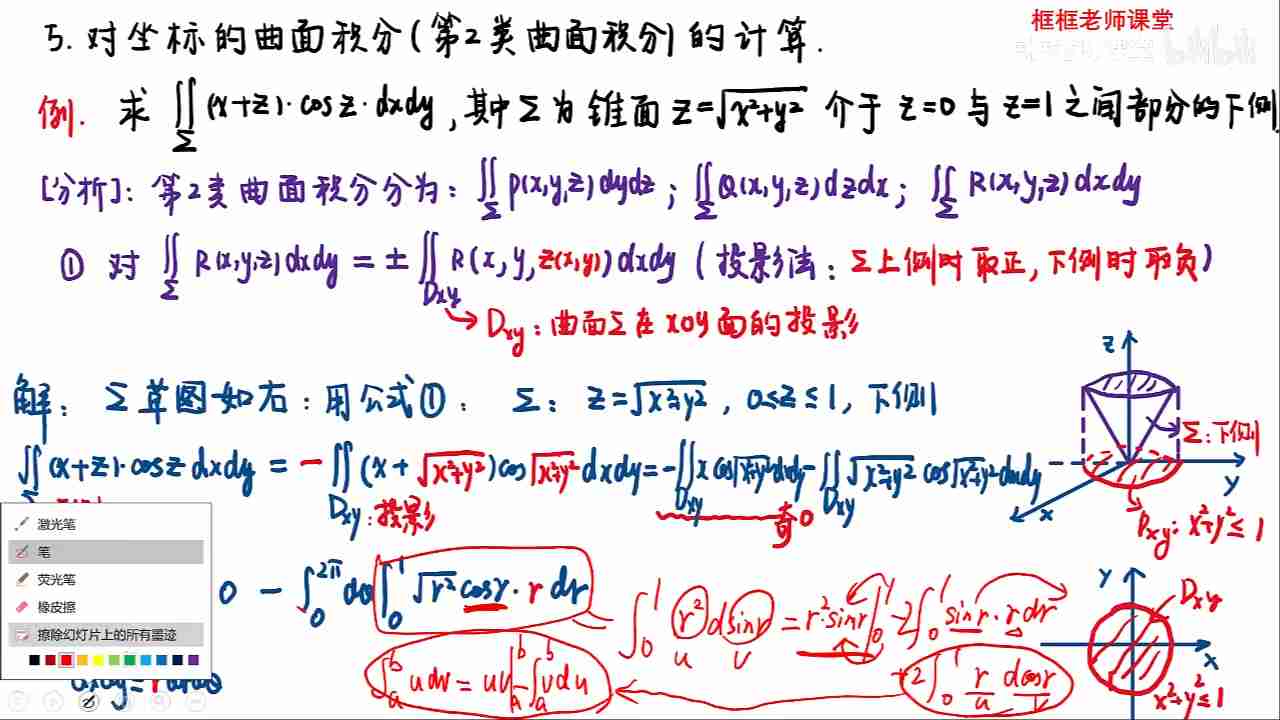 框框老师课堂
5. 对坐标的曲面积分(第2类曲面积分)的计算.
例. 求 ∬_Σ (x+z)·cosz·dxdy, 其中Σ为锥面 z=√(x²+y²) 介于 z=0 与 z=1 之间部分的下侧
[分析]: 第2类曲面积分分为: ∬_Σ P(x,y,z)dydz; ∬_Σ Q(x,y,z)dzdx; ∬_Σ R(x,y,z)dxdy
① 对 ∬_Σ R(x,y,z)dxdy = ±∬_Dxy R(x,y,z(x,y))dxdy (投影法: Σ上侧时取正, 下侧时取负)
→ Dxy: 曲面Σ在xoy面的投影
解: Σ草图如右: 用公式①: Σ: z=√(x²+y²), 0≤z≤1, 下侧
∬_Σ (x+z)·cosz dxdy = -∬_Dxy (x+√(x²+y²))cos√(x²+y²) dxdy = -∬_Dxy x cos√(x²+y²) dxdy - ∬_Dxy √(x²+y²) cos√(x²+y²) dxdy
Dxy: 投影
奇0
0 - ∫_0^{2π} dθ ∫_0^1 √r² cosr·r dr
∫_0^1 r² d sinr = r²·sinr|_0^1 - 2∫_0^1 sinr·r dr
u v
∫_a^b u dv = uv|_a^b - ∫_a^b v du
+2∫_0^1 r dcosr
u v
z
Σ: 下侧
y
x
Dxy: x²+y²≤1
y
Dxy
x
x²+y²≤1
激光笔
笔
荧光笔
橡皮擦
擦除幻灯片上的所有墨迹